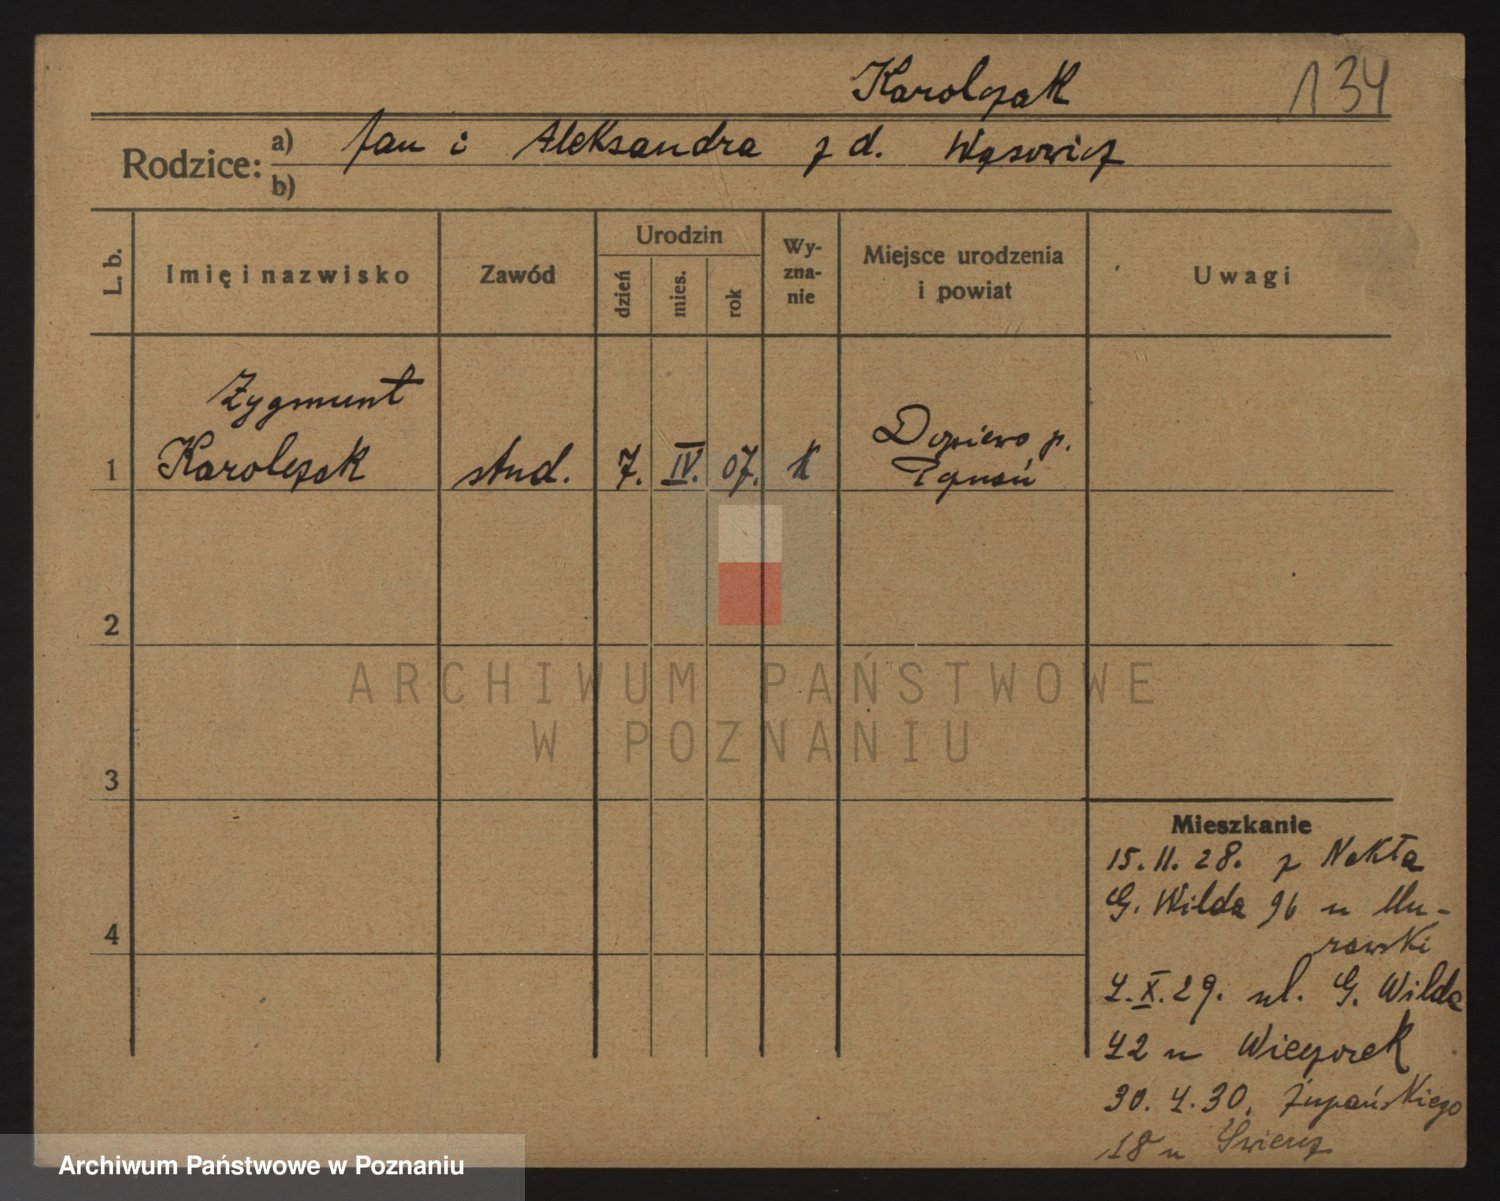 Karolczak
134
Rodzice:
a) Jan i Aleksandra z d. Wąsowicz
b)
L. b.
Imię i nazwisko
Zawód
Urodzin
dzień
mies.
rok
Wy-
zna-
nie
Miejsce urodzenia
i powiat
Uwagi
Zygmunt
1 Karolczak stud. 7. IV. 07. K
Dopiewo p.
Poznań
2
3
4
Mieszkanie
15. 11. 28. z Nakła
G. Wilda 96 u Mu-
rawski
4. X. 29. ul. G. Wilda
42 u Wieczorek
30. 4. 30. Żupańskiego
18 u Świercz
ARCHIWUM PAŃSTWOWE
W POZNANIU
Archiwum Państwowe w Poznaniu